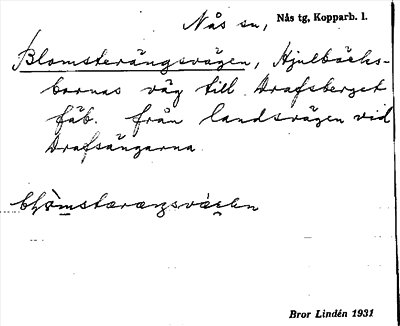 Nås sn, Nås tg, Kopparb. l.
Blomsterängsvägen, Hjulbäcks-
bornas väg till Drafsberget
fäb. från landsvägen vid
Drafsängarna
Bror Lindén 1931